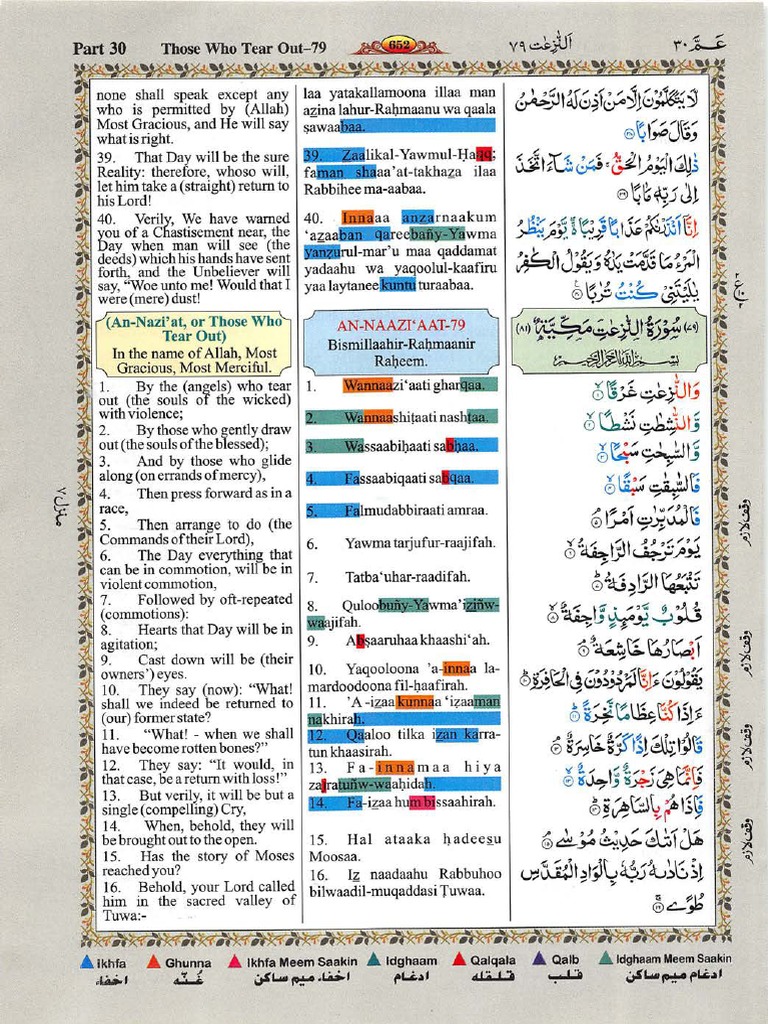 Part 30 Those Who Tear Out–79 652 اَلنّٰزِعٰت ٧٩ عَـمَّ ٣٠
none shall speak except any
who is permitted by (Allah)
Most Gracious, and He will say
what is right.
39. That Day will be the sure
Reality: therefore, whoso will,
let him take a (straight) return to
his Lord!
40. Verily, We have warned
you of a Chastisement near, the
Day when man will see (the
deeds) which his hands have sent
forth, and the Unbeliever will
say, “Woe unto me! Would that I
were (mere) dust!
(An-Nazi’at, or Those Who
Tear Out)
In the name of Allah, Most
Gracious, Most Merciful.
1. By the (angels) who tear
out (the souls of the wicked)
with violence;
2. By those who gently draw
out (the souls of the blessed);
3. And by those who glide
along (on errands of mercy),
4. Then press forward as in a
race,
5. Then arrange to do (the
Commands of their Lord),
6. The Day everything that
can be in commotion, will be in
violent commotion,
7. Followed by oft-repeated
(commotions):
8. Hearts that Day will be in
agitation;
9. Cast down will be (their
owners’) eyes.
10. They say (now): “What!
shall we indeed be returned to
(our) former state?
11. “What! - when we shall
have become rotten bones?”
12. They say: “It would, in
that case, be a return with loss!”
13. But verily, it will be but a
single (compelling) Cry,
14. When, behold, they will
be brought out to the open.
15. Has the story of Moses
reached you?
16. Behold, your Lord called
him in the sacred valley of
Tuwa:-
laa yatakallamoona illaa man
azina lahur-Raḥmaanu wa qaala
ṣawaabaa.
39. Zaalikal-Yawmul-Ḥaqq;
faman shaaa’at-takhaza ilaa
Rabbihee ma-aabaa.
40. Innaaa anzarnaakum
‘azaaban qareebañy-Yawma
yanzurul-mar’u maa qaddamat
yadaahu wa yaqoolul-kaafiru
yaa laytanee kuntu turaabaa.
AN-NAAZI‘AAT-79
Bismillaahir-Raḥmaanir
Raḥeem.
1. Wannaazi‘aati gharqaa.
2. Wannaashiṭaati nashṭaa.
3. Wassaabiḥaati sabḥaa.
4. Fassaabiqaati sabqaa.
5. Falmudabbiraati amraa.
6. Yawma tarjufur-raajifah.
7. Tatba‘uhar-raadifah.
8. Quloobuñy-Yawma’iziñw-
waajifah.
9. Abṣaaruhaa khaashi‘ah.
10. Yaqooloona ’a-innaa la-
mardoodoona fil-ḥaafirah.
11. ’A-izaa kunnaa ‘izaaman
nakhirah.
12. Qaaloo tilka izan karra-
tun khaasirah.
13. Fa-innamaa hiya
zajratuñw-waaḥidah.
14. Fa-izaa hum bissaahirah.
15. Hal ataaka ḥadeesu
Moosaa.
16. Iz naadaahu Rabbuhoo
bilwaadil-muqaddasi Ṭuwaa.
لَا يَتَكَلَّمُوْنَ اِلَّا مَنْ اَذِنَ لَهُ الرَّحْمٰنُ
وَقَالَ صَوَابًا ﴿٣٨﴾
ذٰلِكَ الْيَوْمُ الْحَقُّ ۚ فَمَنْ شَآءَ اتَّخَذَ
اِلٰى رَبِّهٖ مَاٰبًا ﴿٣٩﴾
اِنَّآ اَنْذَرْنٰكُمْ عَذَابًا قَرِيْبًا ۚۖ يَّوْمَ يَنْظُرُ
الْمَرْءُ مَا قَدَّمَتْ يَدٰهُ وَيَقُوْلُ الْكٰفِرُ
يٰلَيْتَنِيْ كُنْتُ تُرٰبًا ﴿٤٠﴾
(٧٩) سُوْرَةُ النّٰزِعٰتِ مَكِّيَّةٌ (٨١)
بِسْمِ اللّٰهِ الرَّحْمٰنِ الرَّحِيْمِ
وَالنّٰزِعٰتِ غَرْقًا ﴿١﴾
وَّالنّٰشِطٰتِ نَشْطًا ﴿٢﴾
وَّالسّٰبِحٰتِ سَبْحًا ﴿٣﴾
فَالسّٰبِقٰتِ سَبْقًا ﴿٤﴾
فَالْمُدَبِّرٰتِ اَمْرًا ﴿٥﴾
يَوْمَ تَرْجُفُ الرَّاجِفَةُ ﴿٦﴾
تَتْبَعُهَا الرَّادِفَةُ ﴿٧﴾
قُلُوْبٌ يَّوْمَئِذٍ وَّاجِفَةٌ ﴿٨﴾
اَبْصَارُهَا خَاشِعَةٌ ﴿٩﴾
يَقُوْلُوْنَ ءَاِنَّا لَمَرْدُوْدُوْنَ فِى الْحَافِرَةِ ﴿١٠﴾
ءَاِذَا كُنَّا عِظَامًا نَّخِرَةً ﴿١١﴾
قَالُوْا تِلْكَ اِذًا كَرَّةٌ خَاسِرَةٌ ﴿١٢﴾
فَاِنَّمَا هِيَ زَجْرَةٌ وَّاحِدَةٌ ﴿١٣﴾
فَاِذَا هُمْ بِالسَّاهِرَةِ ﴿١٤﴾
هَلْ اَتٰىكَ حَدِيْثُ مُوْسٰى ﴿١٥﴾
اِذْ نَادٰىهُ رَبُّهٗ بِالْوَادِ الْمُقَدَّسِ
طُوًى ﴿١٦﴾
وقف لازم
وقف لازم
وقف لازم
وقف لازم
منزل ٧
Ikhfa Ghunna Ikhfa Meem Saakin Idghaam Qalqala Qalb Idghaam Meem Saakin
اخفاء غُنّه اخفاء میم ساکن ادغام قلقله قلب ادغام میم ساکن